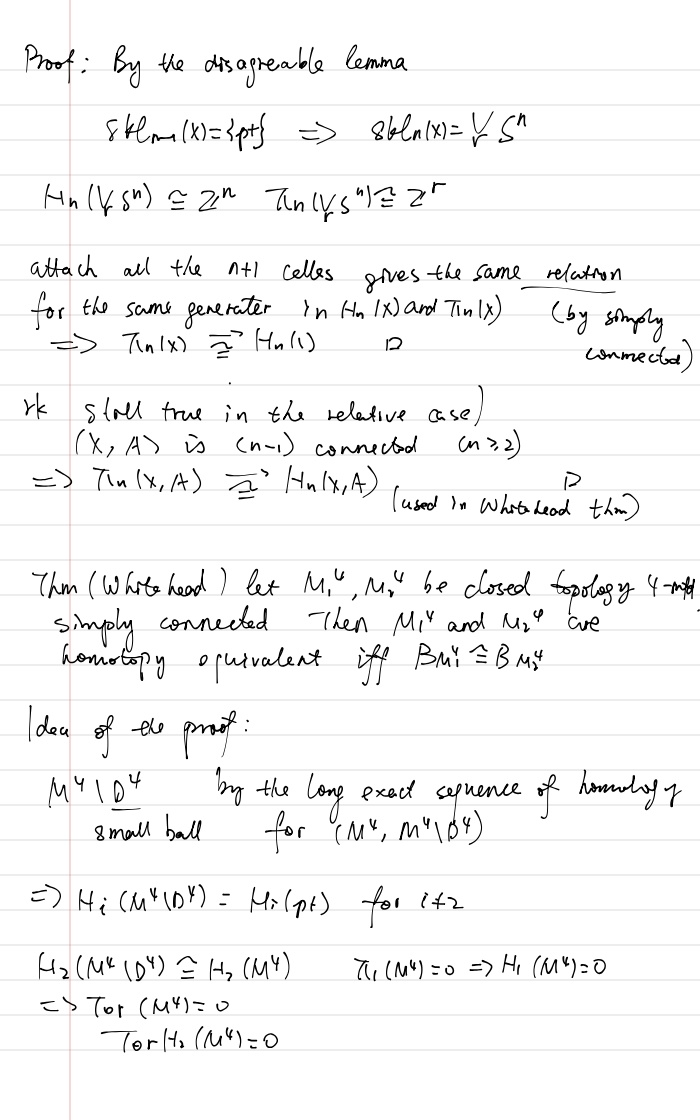 Proof: By the disagreeable lemma
skl_{n-1}(X)={pt} => skl_n(X)= ∨_r S^n
H_n(∨_r S^n) ≅ Z^n π_n(∨_r S^n) ≅ Z^r
attach all the n+1 celles gives the same relation
for the same generater in H_n(X) and π_n(X) (by simply
=> π_n(X) →≅ H_n(1) □ connected)
rk still true in the relative case)
(X, A) is (n-1) connected (n≥2)
=> π_n(X, A) →≅ H_n(X, A) □
(used in Whitehead thm)
Thm (Whitehead) let M_1^4, M_2^4 be closed topology 4-mfd.
simply connected Then M_1^4 and M_2^4 are
homotopy equivalent iff B_{M_1^4} ≅ B_{M_2^4}
Idea of the proof:
M^4\D^4 by the long exact sequence of homology
small ball for (M^4, M^4\D^4)
=> H_i(M^4\D^4) = H_i(pt) for i≠2
H_2(M^4\D^4) ≅ H_2(M^4) π_1(M^4)=0 => H_1(M^4)=0
=> Tor(M^4)=0
Tor H_2(M^4)=0